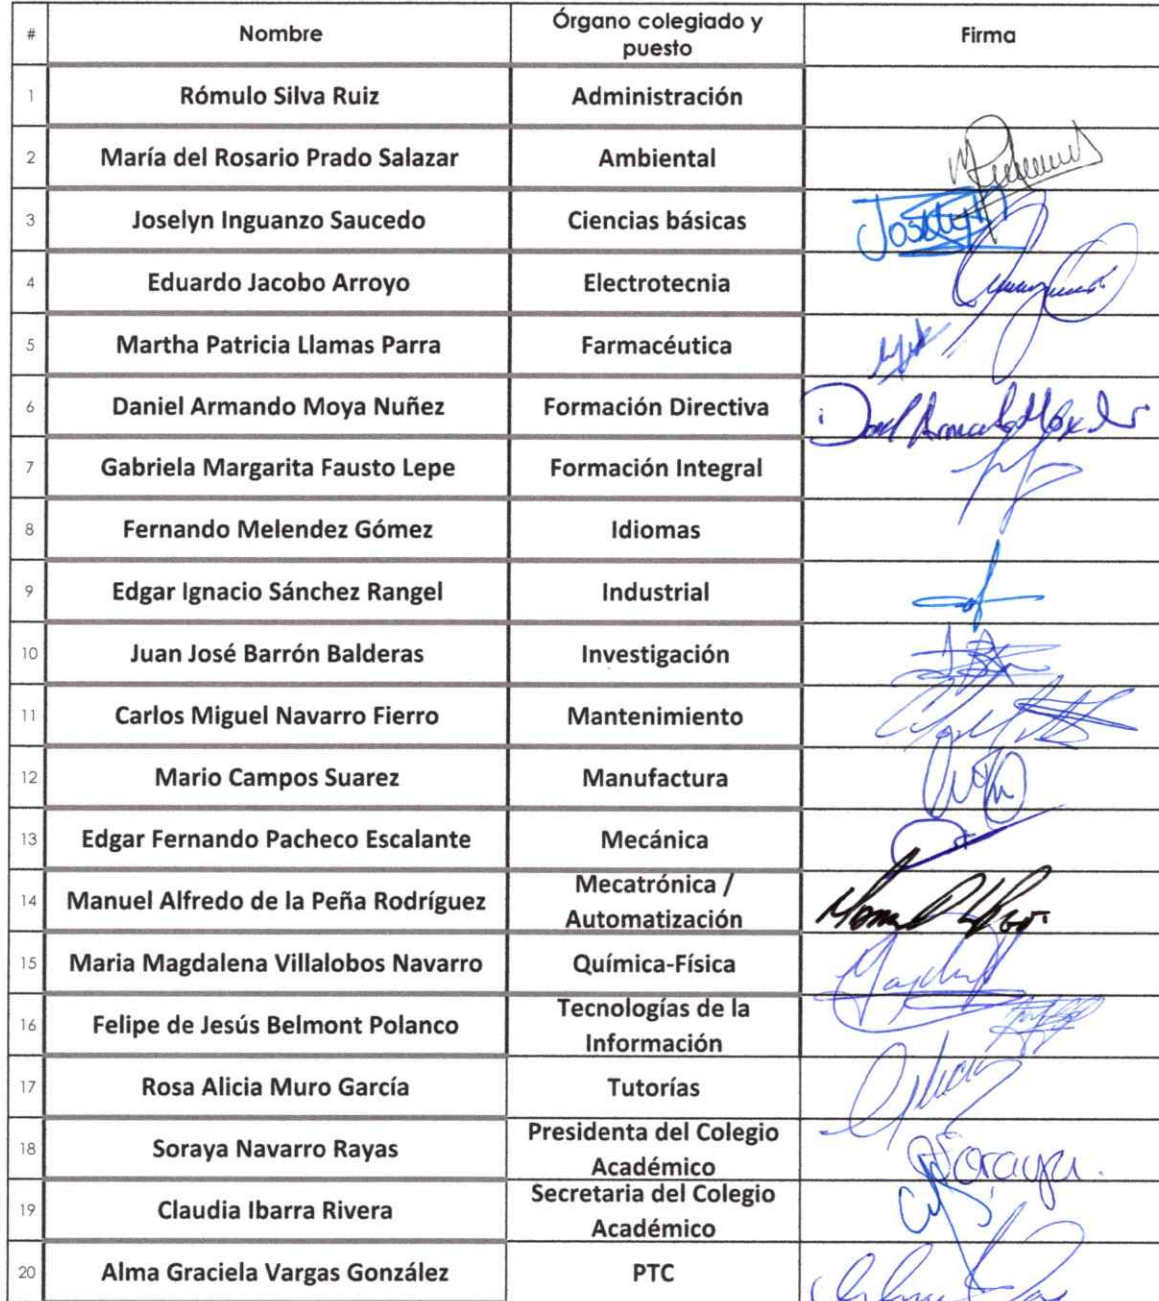 # Nombre Órgano colegiado y puesto Firma
1 Rómulo Silva Ruiz Administración
2 María del Rosario Prado Salazar Ambiental
3 Joselyn Inguanzo Saucedo Ciencias básicas Joselyn
4 Eduardo Jacobo Arroyo Electrotecnia
5 Martha Patricia Llamas Parra Farmacéutica
6 Daniel Armando Moya Nuñez Formación Directiva
7 Gabriela Margarita Fausto Lepe Formación Integral
8 Fernando Melendez Gómez Idiomas
9 Edgar Ignacio Sánchez Rangel Industrial
10 Juan José Barrón Balderas Investigación
11 Carlos Miguel Navarro Fierro Mantenimiento
12 Mario Campos Suarez Manufactura
13 Edgar Fernando Pacheco Escalante Mecánica
14 Manuel Alfredo de la Peña Rodríguez Mecatrónica / Automatización
15 Maria Magdalena Villalobos Navarro Química-Física
16 Felipe de Jesús Belmont Polanco Tecnologías de la Información
17 Rosa Alicia Muro García Tutorías
18 Soraya Navarro Rayas Presidenta del Colegio Académico Soraya
19 Claudia Ibarra Rivera Secretaria del Colegio Académico
20 Alma Graciela Vargas González PTC